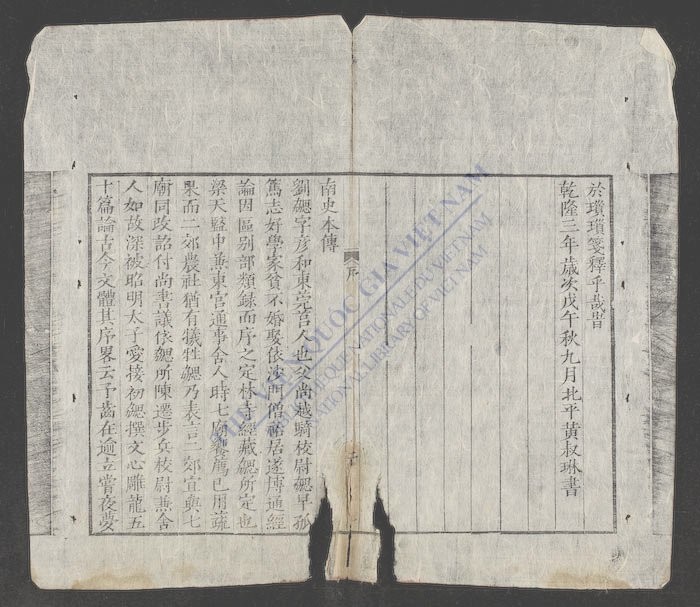 於瑣瑣箋釋乎哉旹
乾隆三年歲次戊午秋九月北平黃叔琳書
序
南史本傳
劉勰字彥和東莞莒人也父尚越騎校尉勰早孤
篤志好學家貧不婚娶依沙門僧祐居遂博通經
論因區别部類録而序之定林寺經藏勰所定也
梁天監中兼東宮通事舍人時七廟饗薦已用蔬
果而二郊農社猶有犧牲勰乃表言二郊宜與七
廟同改詔付尚書議依勰所陳遷步兵校尉兼舍
人如故深被昭明太子愛接初勰撰文心雕龍五
十篇論古今文體其序畧云予齒在逾立嘗夜夢
THƯ VIỆN QUỐC GIA VIỆT NAM
BIBLIOTHÈQUE NATIONALE DU VIETNAM
NATIONAL LIBRARY OF VIETNAM